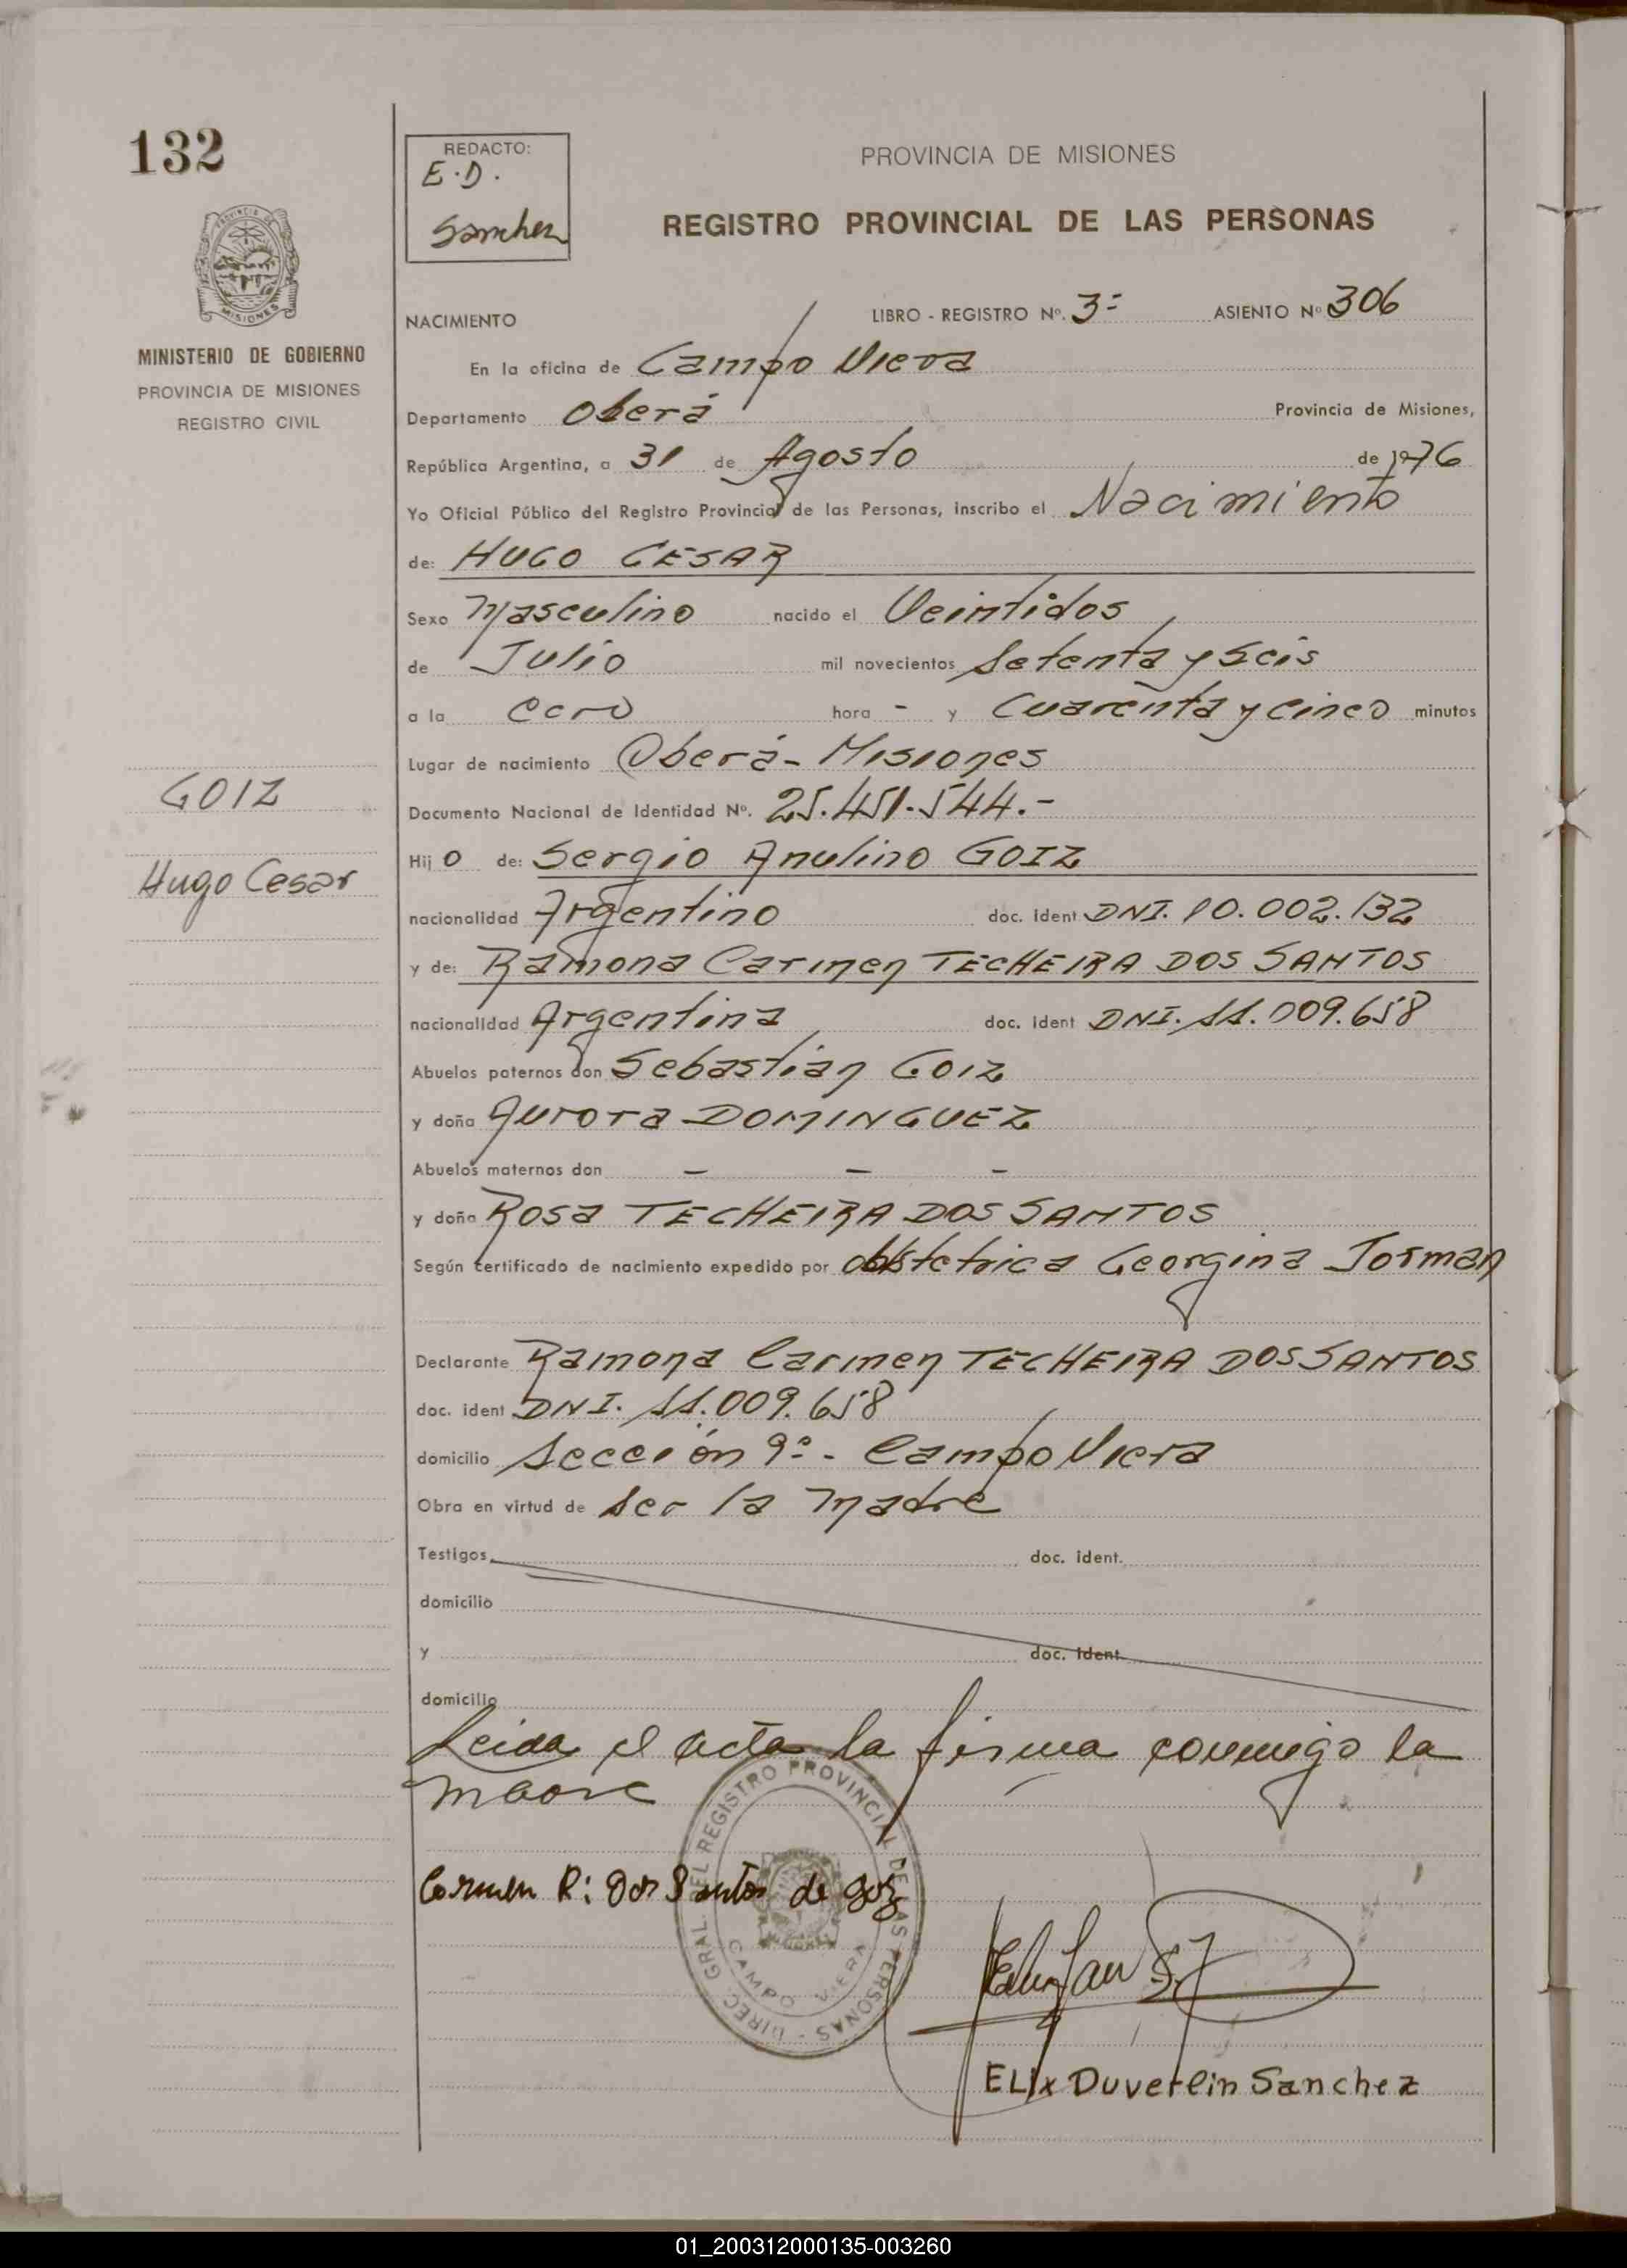 132
REDACTO:
E.D.
Sanchez
PROVINCIA DE MISIONES
REGISTRO PROVINCIAL DE LAS PERSONAS
PROVINCIA DE
MISIONES
MINISTERIO DE GOBIERNO
PROVINCIA DE MISIONES
REGISTRO CIVIL
NACIMIENTO LIBRO - REGISTRO Nº. 3º ASIENTO Nº 306
En la oficina de Campo Viera
Departamento Oberá Provincia de Misiones,
República Argentina, a 31 de Agosto de 1976
Yo Oficial Público del Registro Provincial de las Personas, inscribo el Nacimiento
de: HUGO CESAR
Sexo Masculino nacido el Veintidos
de Julio mil novecientos Setenta y Seis
a la cero hora - y Cuarenta y cinco minutos
Lugar de nacimiento Oberá - Misiones
GOIZ
Documento Nacional de Identidad Nº. 25.451.544.-
Hijo de: Sergio Anulino GOIZ
Hugo Cesar
nacionalidad Argentino doc. ident DNI. 10.002.132
y de: Ramona Carmen TECHEIRA DOS SANTOS
nacionalidad Argentina doc. ident DNI. 11.009.658
Abuelos paternos don Sebastian Goiz
y doña Aurora DOMINGUEZ
Abuelos maternos don - - -
y doña Rosa TECHEIRA DOS SANTOS
Según certificado de nacimiento expedido por obstetrica Georgina Jorman
Declarante Ramona Carmen TECHEIRA DOS SANTOS
doc. ident DNI. 11.009.658
domicilio Sección 9º - Campo Viera
Obra en virtud de ser la madre
Testigos doc. ident.
domicilio
y doc. ident
domicilio
Leida el acta la firma conmigo la
madre
Carmen R: Dos Santos de goiz
DIREC. GRAL. DEL REGISTRO PROVINCIAL DE LAS PERSONAS -
CAMPO VIERA
ELIX Duverlin Sanchez
01_200312000135-003260